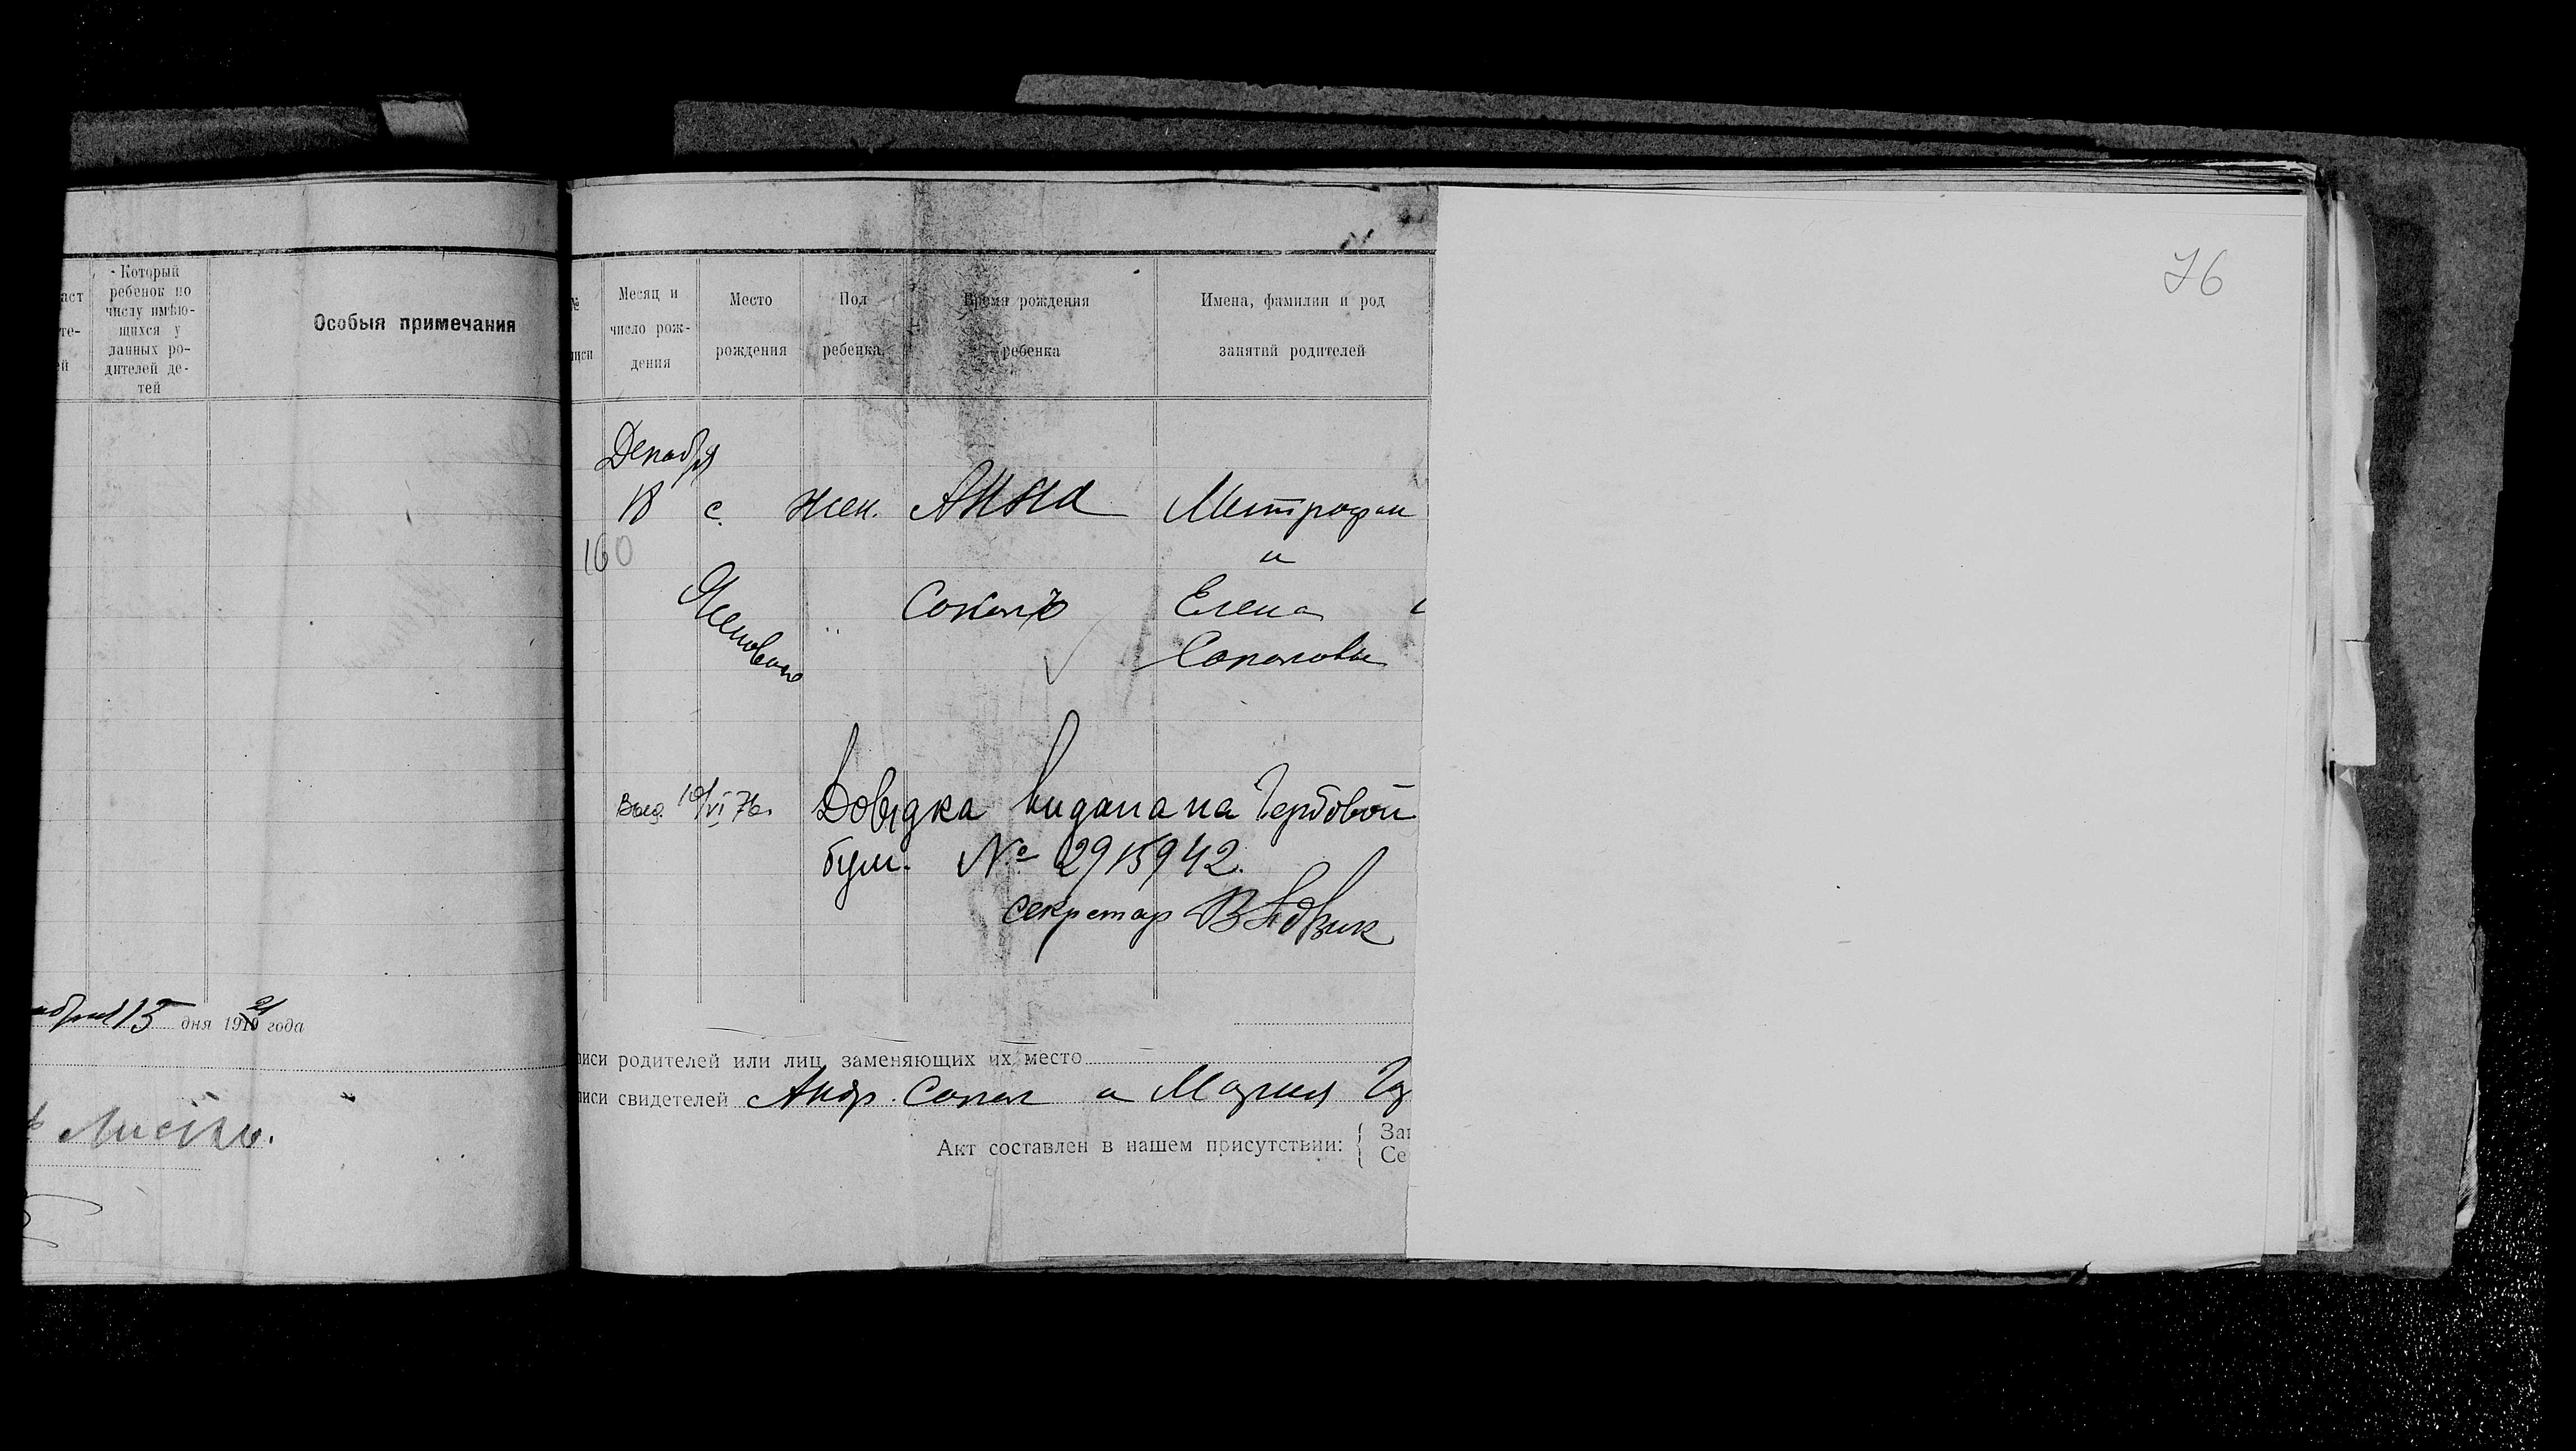 76
аст
те-
ей
Который
ребенок по
числу имѣю-
щихся у
данных ро-
дителей де-
тей
Особыя примечания
15 дня 1921 года
№
писи
Месяц и
число рож-
дения
Место
рождения
Пол
ребенка
Время рождения
ребенка
Имена, фамилии и род
занятий родителей
Декабря
18 с. жен. Анна Митрофан
160 и
Сокол Елена
Соколовы
Выд. 10/VI 76. Довідка видана на Гербовой
бум. № 2915942.
секретар
писи родителей или лиц, заменяющих их место
писи свидетелей Андр. Сокол и Мария
Акт составлен в нашем присутствии: { Заг
Се